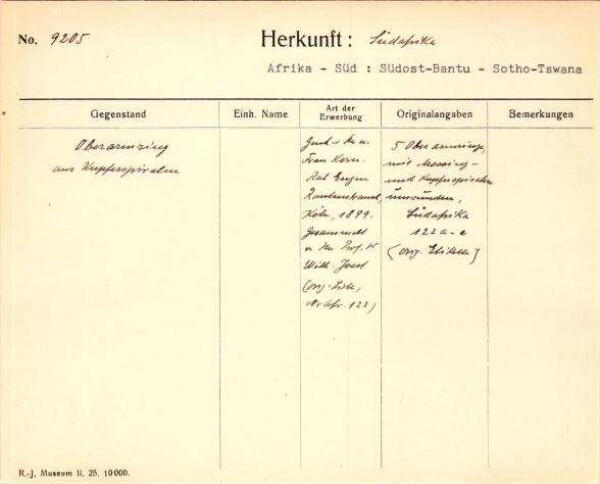 No. 9205
Herkunft: Südafrika
Afrika - Süd : Südost-Bantu - Sotho-Tswana
Gegenstand
Einh. Name
Art der Erwerbung
Originalangaben
Bemerkungen
Oberarmring
aus Kupferspiralen
Frau
Rat Eugen
Rautenstrauch,
Köln, 1899.
Gesammelt
Prof. Dr
Wilh. Joest
(orig. Liste,
Nr Afr. 122)
5 Oberarmringe,
mit Messing-
und Kupferspiralen
umwunden,
Südafrika
122 a-e
(orig. Etikette)
R.-J. Museum II. 25. 10000.